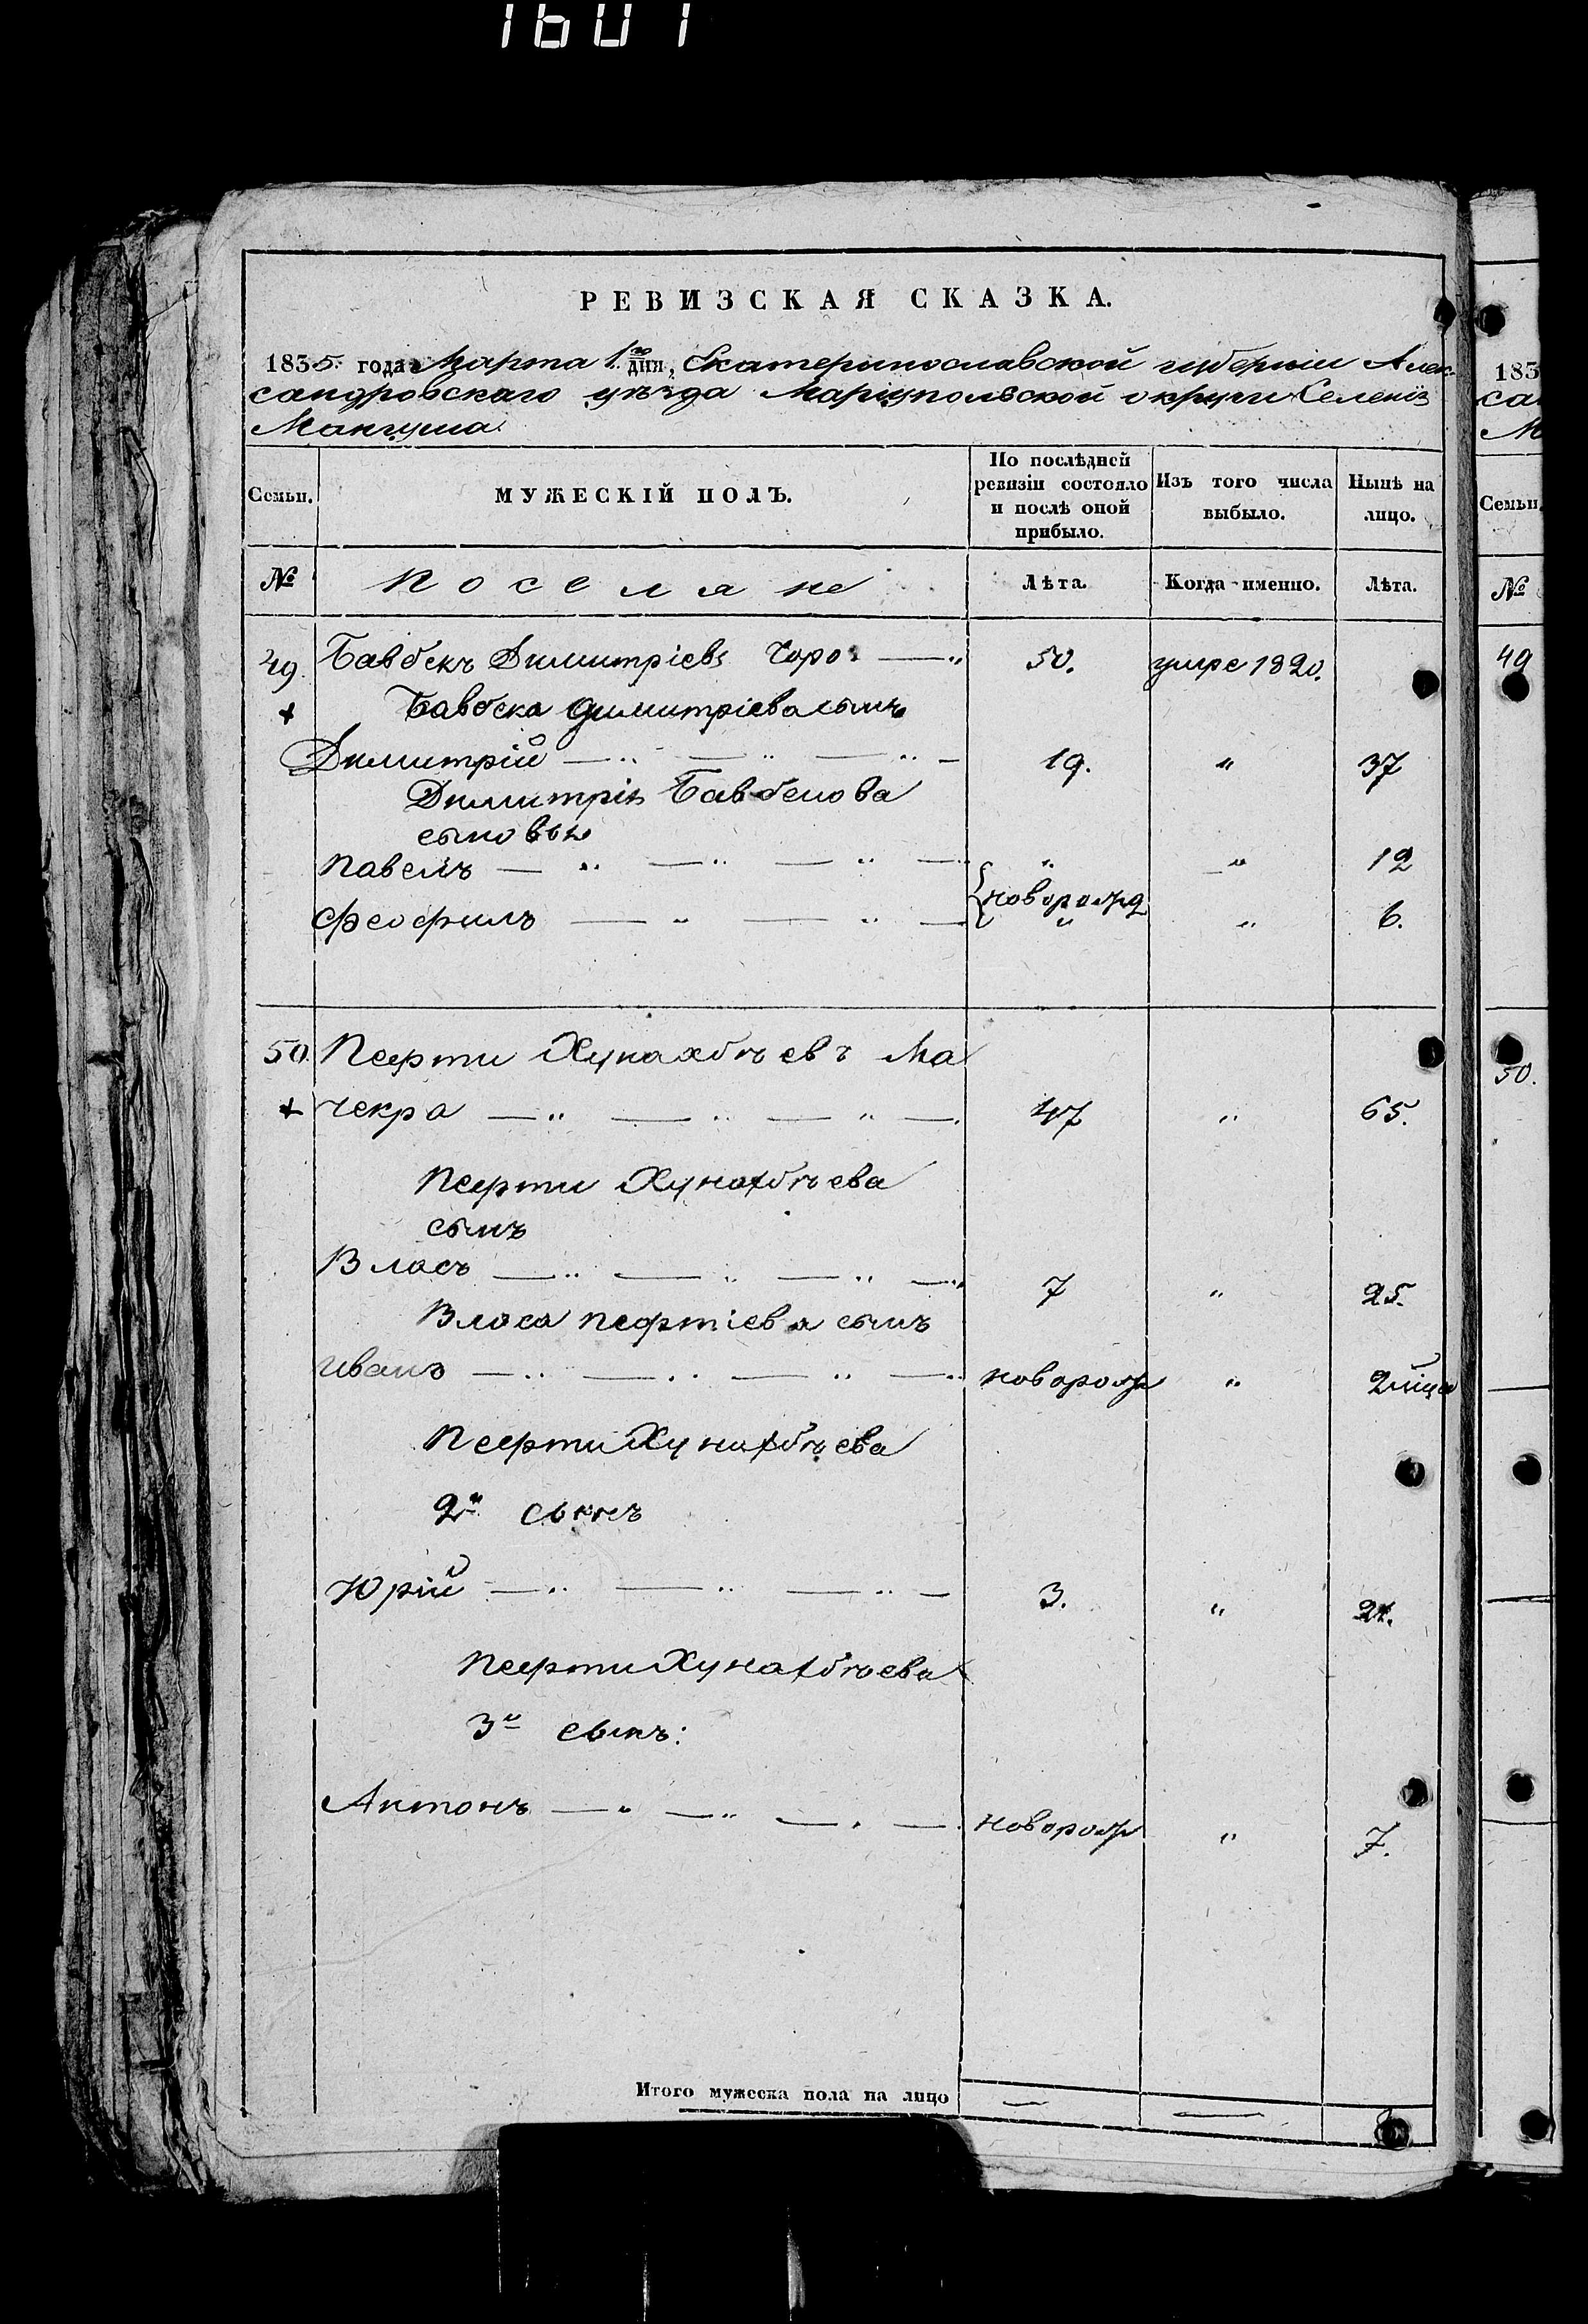 1601
РЕВИЗСКАЯ СКАЗКА.
1835. года Марта 1го дня, Екатеринославской губерніи Алек-
сандровскаго уѣзда Маріупольской округи Селенія
Мангуша.
Семьи.
МУЖЕСКІЙ ПОЛЪ.
По послѣдней ревизіи состояло и послѣ оной прибыло.
Изъ того числа выбыло.
Нынѣ на лицо.
№ Поселяне Лѣта. Когда именно. Лѣта.
49. Бавбекъ Димитріевъ Чоро — " 50. умре 1820.
Бавбека Димитріева сынъ
Димитрій — " — " — " — 19. " 37
Димитрія Бавбекова
сыновья
Павелъ — " — " — " — " " 12
{новорожд
Феофилъ — " — " — " " 6.
50. Пефти Хунахбѣевъ Ма
чекра — " — " — " — 47 " 65.
Пефти Хунахбѣева
сынъ
Власъ — " — " — " — " 7 " 25.
Власа Пефтіева сынъ
Иванъ — " — " — " — " новорож " 2 мѣца
Пефти Хунахбѣева
2й сынъ
Юрій — " — " — " — 3. " 21.
Пефти Хунахбѣева
3й сынъ:
Антонъ — " — " — " — новорож " 7.
Итого мужеска пола на лицо — — 8
183
са
М
Семьи.
№
49
50.